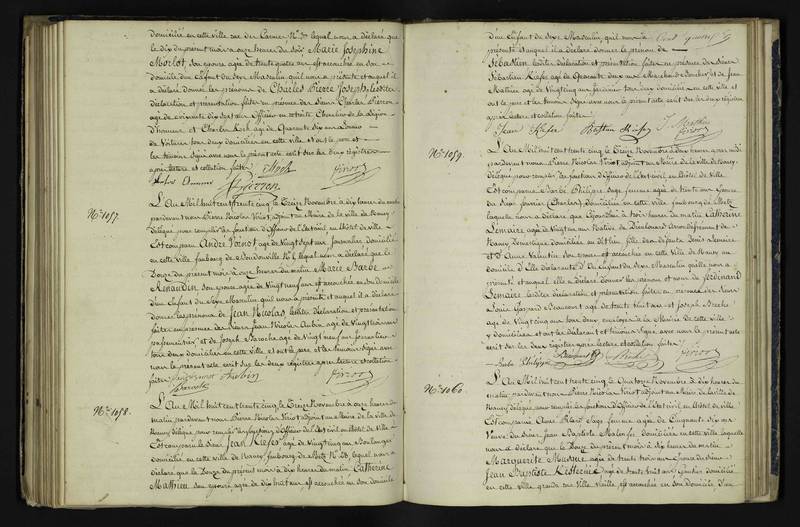 domicilié en cette ville rue des Carmes N° lequel nous a déclaré que
le dix du présent mois à onze heures du soir Marie Joséphine
Morlot, son épouse âgée de trente quatre ans est accouchée en son
domicile d'un Enfant du Sexe Masculin qu'il nous a présenté et auquel il
a déclaré donner les prénoms de Charles Pierre Joseph; lesdites
déclaration et présentation faites en présence des Sieurs Charles Pierson
âgé de ans Officier en retraite Chevalier de la Légion
d'honneur et Charles âgé de Quarante six ans Loueur
de Voitures tous deux domiciliés en cette ville et ont le père et
les témoins Signé avec nous le présent acte écrit sur les deux régistres
après lecture et collation faites
Pierson Viriot
N° 1057.
L'An Mil huit cent trente cinq le Treize Novembre à dix heures du matin
pardevant nous Pierre Nicolas Viriot adjoint au Maire de la ville de Nancy
délégué pour remplir les fonctions d'Officier de l'Etat civil en Hôtel de Ville
Est comparu André Voinot âgé de Vingt Sept ans, Journalier, domicilié
en cette ville faubourg de Boudonville N° lequel nous a déclaré que le
Douze du présent mois à onze heures du matin Marie Barbe
Renaudin, son épouse âgée de Vingt neuf ans est accouchée en son domicile
d'un Enfant du Sexe Masculin qu'il nous a présenté et auquel il a déclaré
donner les prénoms de Jean Nicolas, lesdites Déclaration et présentation
faites en présence des Sieurs Jean Nicolas Aubin âgé de Vingt trois ans
passementier et de Joseph Baroche âgé de Vingt neuf ans
tous deux domiciliés en cette ville et ont le père et les témoins Signé avec
nous le présent acte écrit sur les deux régistres après lecture et collation
faites. Aubin Viriot
N° 1058.
L'An Mil huit cent trente cinq le Treize Novembre à onze heures du
matin pardevant nous Pierre Nicolas Viriot adjoint au Maire de la ville de
Nancy délégué pour remplir les fonctions d'Officier de l'Etat civil en Hôtel de Ville
Est comparu le Sieur Jean Kiefer âgé de Vingt cinq ans Boulanger
domicilié en cette ville de Nancy, faubourg de Metz N° 28, lequel nous a
déclaré que le Douze du présent mois à dix heures du matin Catherine
Mathieu son épouse, âgée de dix huit ans, est accouchée en son domicile
d'un Enfant du Sexe Masculin qu'il nous a
présenté et auquel il a déclaré donner le prénom de
Sébastien lesdites déclaration et présentation faites en présence des Sieurs
Sébastien Kiefer âgé de Quarante deux ans Marchand de et de Jean
Mathieu âgé de Vingt cinq ans Jardinier tous deux domiciliés en cette ville et
ont le père et les témoins Signé avec nous le présent acte écrit sur les deux régistres
après lecture et collation faites
Jean Kiefer Bastian Kiefer J. Mathieu
Viriot
N° 1059.
L'An Mil huit cent trente cinq le Treize Novembre à deux heures après midi
pardevant nous Pierre Nicolas Viriot adjoint au Maire de la ville de Nancy
délégué pour remplir les fonctions d'Officier de l'Etat civil en Hôtel de Ville
Est comparue Barbe Philippe Sage femme âgée de trente six ans
du Sieur domiciliée en cette ville faubourg de Metz
laquelle nous a déclaré que Cejourd'hui à trois heures du matin Catherine
Lemaire âgée de Vingt un ans Native de Dieulouard arrondissement de
Nancy Domestique domiciliée au dit lieu fille des défunts Denis Lemaire
et d'Anne Valentin son épouse est accouchée en cette Ville de Nancy au
domicile d'Elle déclarante d'un Enfant du Sexe Masculin qu'elle nous a
présenté et auquel elle a déclaré donner les prénom et nom de Ferdinand
Lemaire lesdites déclaration et présentation faites en présence des Sieurs
Louis Gaspard Beaumont âgé de trente huit ans et Joseph
âgé de Vingt cinq ans tous deux employés à la Mairie de cette ville
y domiciliés et ont la déclarante et témoins Signé avec nous le présent acte
écrit sur les deux régistres après lecture et collation faites
Barbe Philippe Beaumont Viriot
N° 1060.
L'An Mil huit cent trente cinq le Quatorze Novembre à dix heures du
matin pardevant nous Pierre Nicolas Viriot adjoint au Maire de la ville de
Nancy délégué pour remplir les fonctions d'Officier de l'Etat civil en Hôtel de Ville
Est comparue Anne Sage femme âgée de Cinquante dix ans
Veuve du Sieur Jean Baptiste domiciliée en cette ville laquelle
nous a déclaré que le Douze du présent mois à dix heures du matin
Marguerite âgée de trente trois ans Epouse du Sieur
Jean Baptiste âgé de trente huit ans domicilié
en cette ville grande rue Ville vieille, est accouchée en son domicile d'un